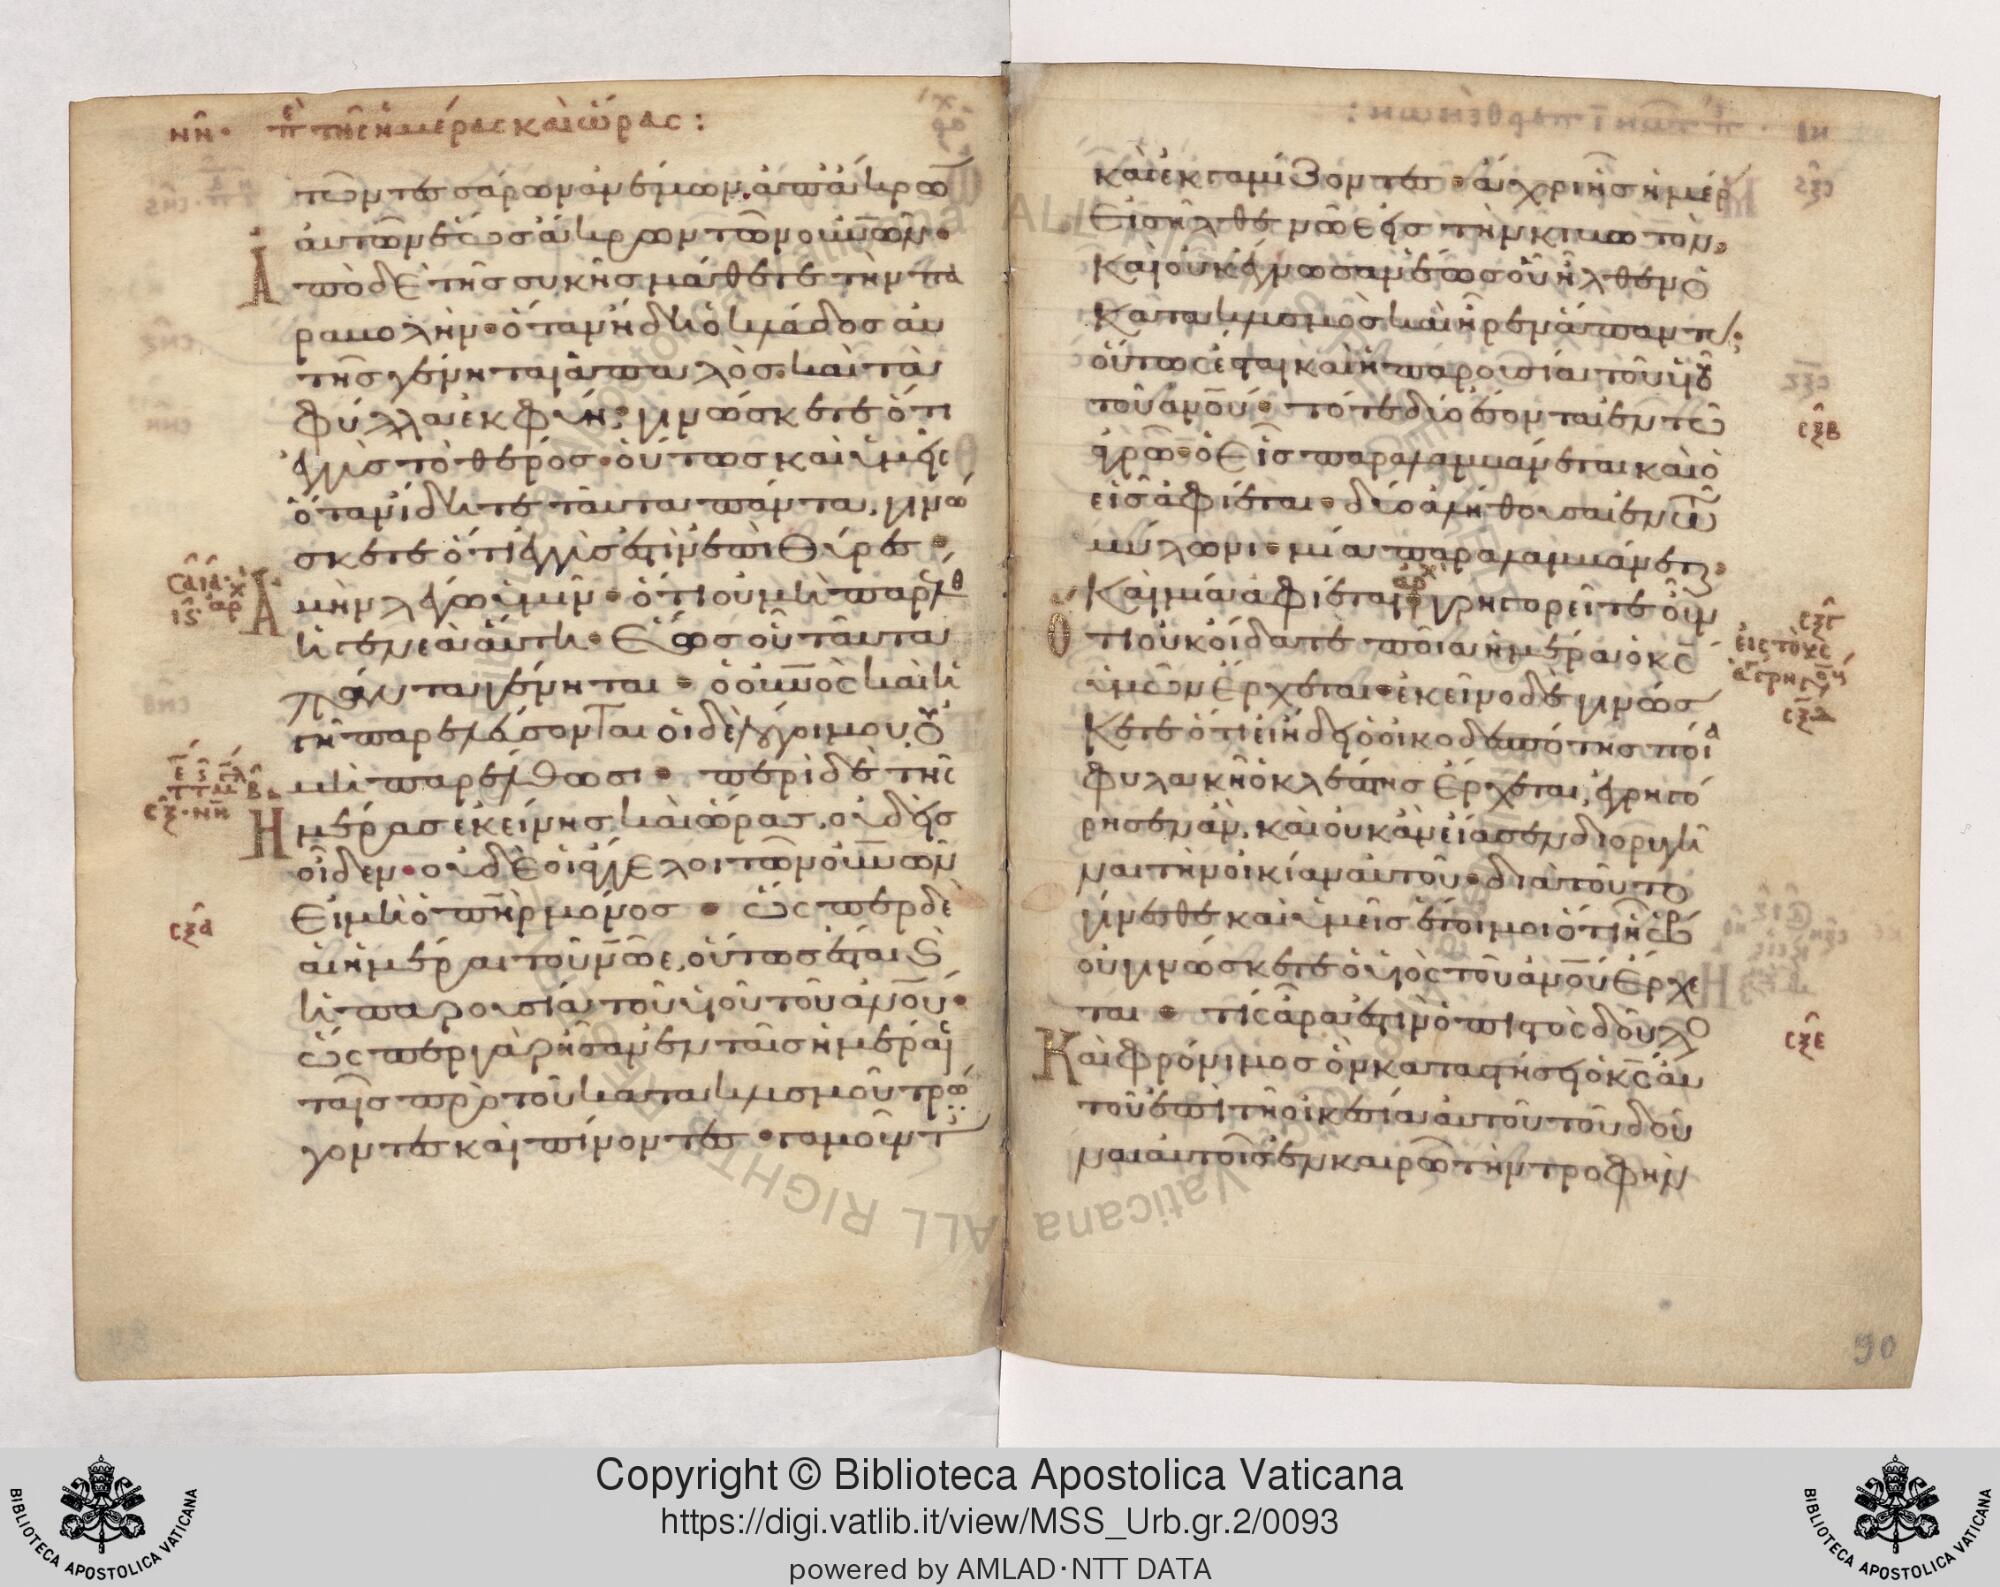 νη· π̅ε̅ τῆς ἡμέρας καὶ ὥρας:
τῶν τεσσάρων ἀνέμων, ἀπ' ἄκρω
αὐτῶν ἕως ἄκρων τῶν οὐν̅ῶν·
Ἀπὸ δὲ τῆς συκῆς μάθετε τὴν πα
ραβολήν· ὅταν ἤδη ὁ κλάδος αὐ
τῆς γένηται ἁπαλὸς· καὶ τὰ
φύλλα ἐκφύη· γινώσκετε ὅτι
ἐγγὺς τὸ θέρος· οὕτως καὶ ὑμεῖς
ὅταν ἴδητε ταῦτα πάντα, γινώ
σκετε ὅτι ἐγγύς ἐστιν ἐπὶ θύραις·
Ἀμὴν λέγω ὑμῖν· ὅτι οὐ μὴ παρέλθ
ἡ γενεὰ αὕτη· ἕως οὗ ταῦτα
πάντα γένηται· ὁ οὐν̅ὸς καὶ ἡ
γῆ παρελεύσονται οἱ δὲ λόγοι μου οὐ
μὴ παρέλθωσι· περὶ δὲ τῆς
Ἡμέρας ἐκείνης καὶ ὥρας, οὐδεὶς
οἶδεν· οὐδὲ οἱ ἄγγελοι τῶν οὐν̅ῶν
εἰ μὴ ὁ πη̅ρ μόνος· ὥσπερ δὲ
αἱ ἡμέραι τοῦ νῶε, οὕτως ἔσται
ἡ παρουσία τοῦ υἱοῦ τοῦ ἀνο̅υ·
ὥσπερ γὰρ ἦσαν ἐν ταῖς ἡμέραις
ταῖς πρὸ τοῦ κατακλυσμοῦ τρώ
γοντες καὶ πίνοντες· γαμοῦντ
ϲξα
καὶ ἐκγαμίζοντες· ἄχρι ἧς ἡμέρ
εἰσῆλθε νῶε εἰς τὴν κιβωτὸν,
καὶ οὐκ ἔγνωσαν ἕως οὗ ἦλθεν ὁ
κατακλυσμὸς καὶ ἦρεν ἅπαντ·
οὕτως ἔσται καὶ ἡ παρουσία τοῦ υἱοῦ
τοῦ ἀνο̅υ· τότε δύο ἔσονται ἐν τῷ
ἀγρῷ· ὁ εἷς παραλαμβάνεται καὶ ὁ
εἷς ἀφίεται· δύο ἀλήθουσαι ἐν τῷ
μύλωνι· μία παραλαμβάνεται,
καὶ μία ἀφίεται· γρηγορεῖτε οὖν
Ὅτι οὐκ οἴδατε ποία ἡμέρα ὁ κς̅
ὑμῶν ἔρχεται· ἐκεῖνο δὲ γινώς
κετε ὅτι εἰ ἤδει ὁ οἰκοδεσπότης ποία
φυλακῆ ὁ κλέπτης ἔρχεται, ἐγρηγό
ρησεν ἄν, καὶ οὐκ ἂν εἴασεν διορυγῆ
ναι τὴν οἰκίαν αὐτοῦ· διὰ τοῦτο
γίνεσθε καὶ ὑμεῖς ἕτοιμοι ὅτι ἧ ὥρ
οὐ γινώσκετε ὁ υἱὸς τοῦ ἀνο̅υ ἔρχε
ται· τίς ἄρα ἐστιν ὁ πιστὸς δοῦλο
Καὶ φρόνιμος ὃν καταστήσει ὁ κς̅ αὐ
τοῦ ἐπὶ τῆς οἰκετείας αὐτοῦ τοῦ δοῦ
ναι αὐτοῖς ἐν καιρῷ τὴν τροφὴν
ϲξβ
ϲξγ
ϲξδ
ϲξε
90
Copyright © Biblioteca Apostolica Vaticana
https://digi.vatlib.it/view/MSS_Urb.gr.2/0093
powered by AMLAD·NTT DATA
BIBLIOTECA APOSTOLICA VATICANA
BIBLIOTECA APOSTOLICA VATICANA